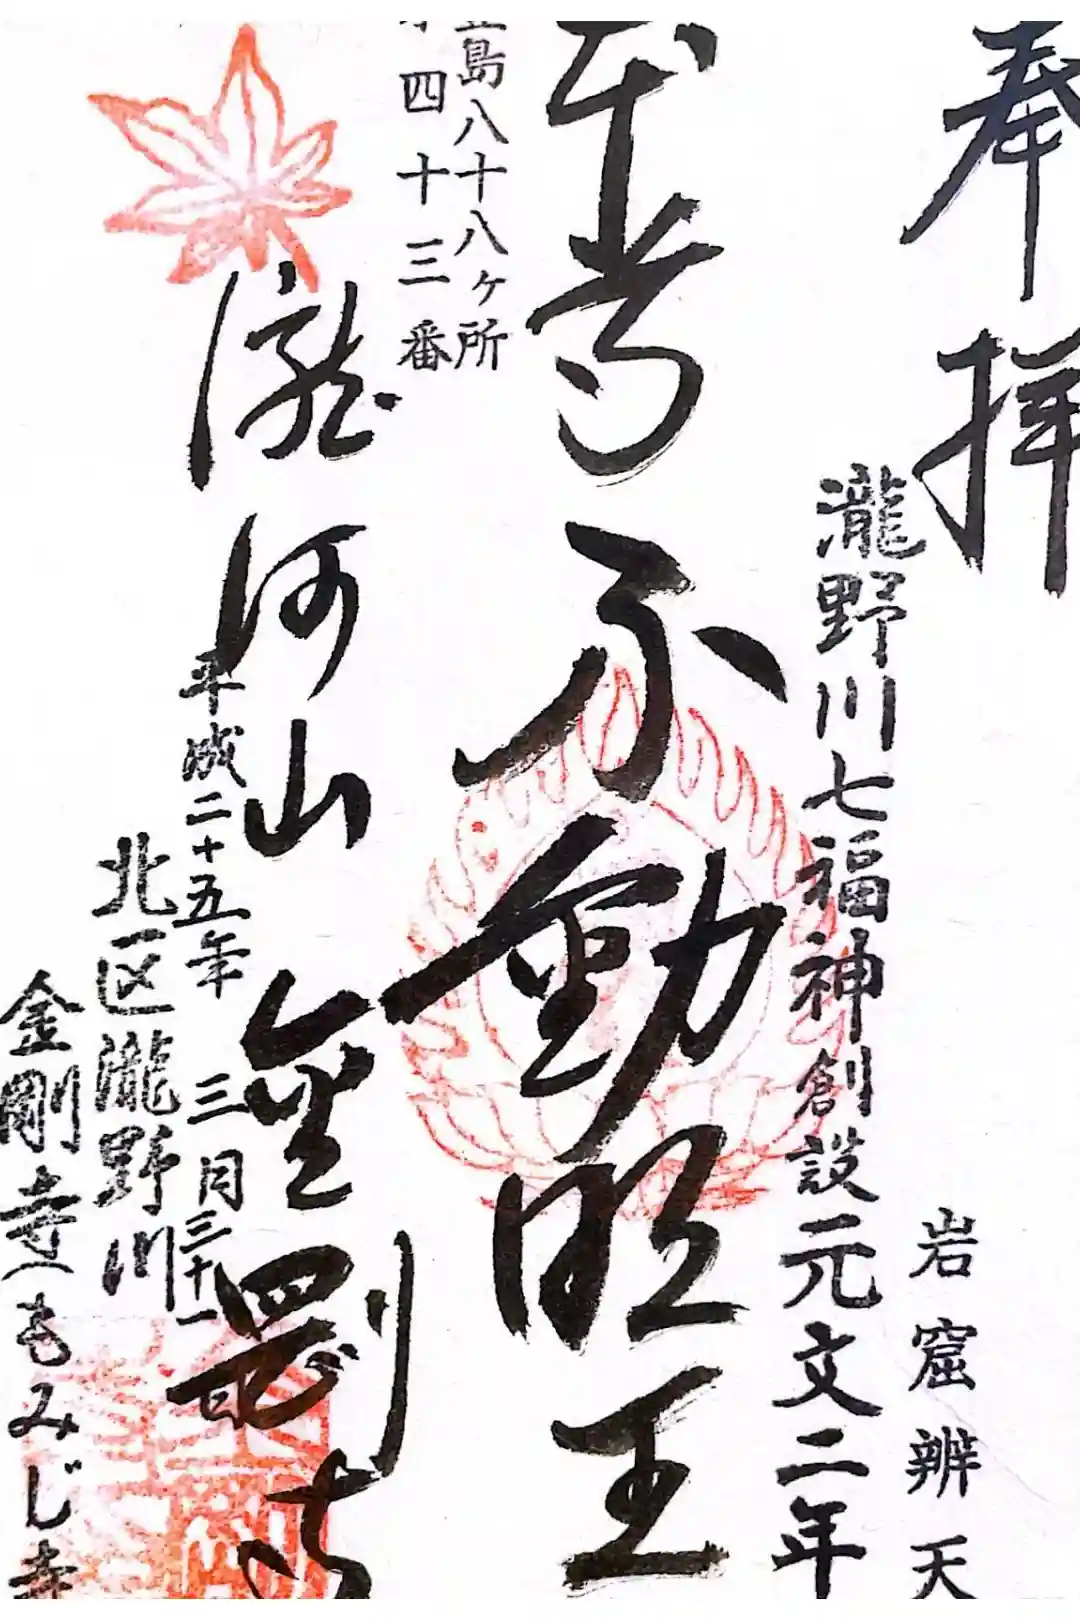 奉拝
岩窟辨天
瀧野川七福神創設元文二年
本尊不動明王
豊島八十八ヶ所
第四十三番
瀧河山金剛寺
平成二十五年三月三十一日
北区瀧野川
金剛寺(もみじ寺